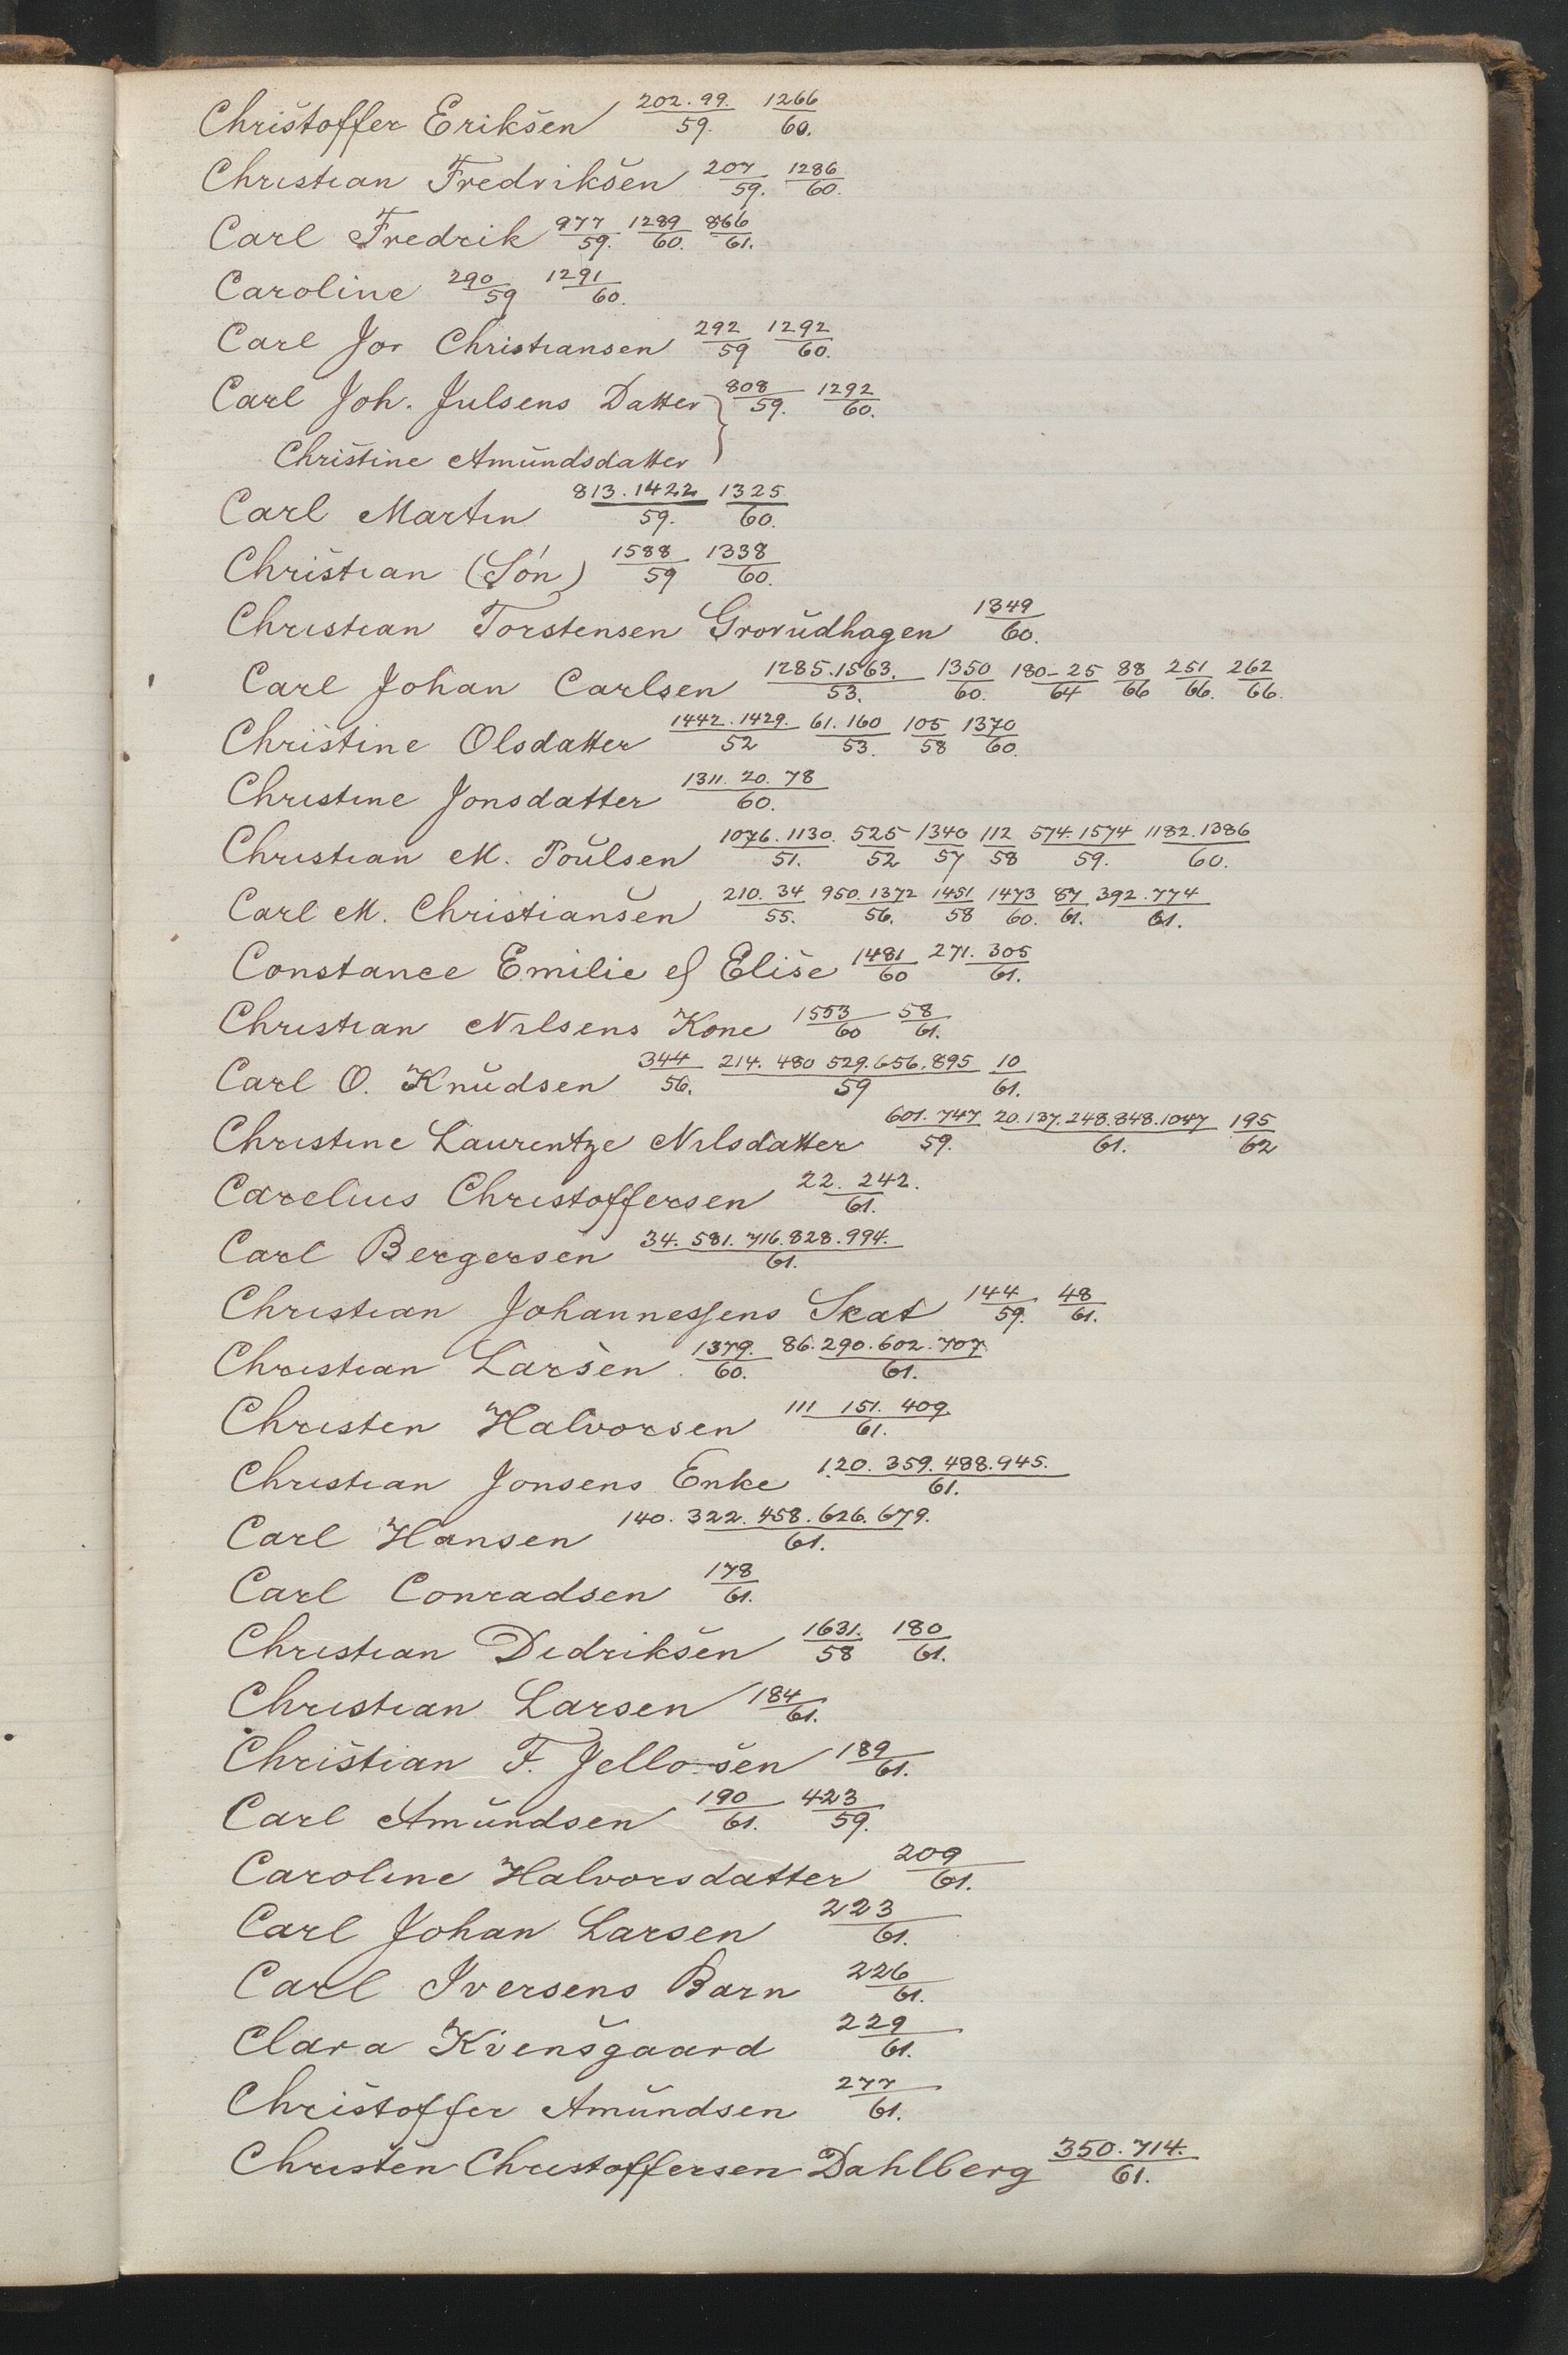 Christoffer Eriksen 202.99./59. 1266/60.
Christian Fredriksen 207/59. 1286/60.
Carl Fredrik 977/59. 1289/60. 866/61.
Caroline 290/59 1291/60.
Carl Jor Christiansen 292/59 1292/60.
Carl Joh. Julsens Datter } 808/59. 1292/60.
Christine Amundsdatter
Carl Martin 813.1422/59. 1325/60.
Christian (Són) 1588/59 1338/60.
Christian Torstensen Grorudhagen 1349/60.
Carl Johan Carlsen 1285.1563./53. 1350/60. 180-25/64 88/66 251/66. 262/66.
Christine Olsdatter 1442.1429./52 61.160/53. 105/58 1370/60.
Christine Jonsdatter 1311.20.78/60.
Christian M. Poulsen 1076.1130./51. 525/52 1340/57 112/58 574.1574/59. 1182.1386/60.
Carl M. Christiansen 210.34/55. 950.1372/56. 1451/58 1473/60. 87/61. 392.774/61.
Constance Emilie & Elise 1481/60 271.305/61.
Christian Nilsens Kone 1553/60 58/61.
Carl O. Knudsen 344/56. 214.480 529.656.895/59 10/61.
Christine Laurentze Nilsdatter 601.747/59. 20.137.248.848.1047/61. 195/62
Carelius Christoffersen 22.242./61.
Carl Bergersen 34.581.716.828.994./61.
Christian Johannessens Skat 144/59. 48/61.
Christian Larsen 1379./60. 86.290.602.707./61.
Christen Halvorsen 111 151.409/61.
Christian Jonsens Enke 120.359.488.945./61.
Carl Hansen 140.322.458.626.679./61.
Carl Conradsen 178/61.
Christian Didriksen 1631./58 180/61.
Christian Larsen 184/61.
Christian F. Jellosen 189/61.
Carl Amundsen 190/61. 423/59.
Caroline Halvorsdatter 209/61.
Carl Johan Larsen 223/61.
Carl Iversens Barn 226/61.
Clara Kivensgaard 229/61.
Christoffer Amundsen 277/61.
Christen Christoffersen Dahlberg 350.714./61.